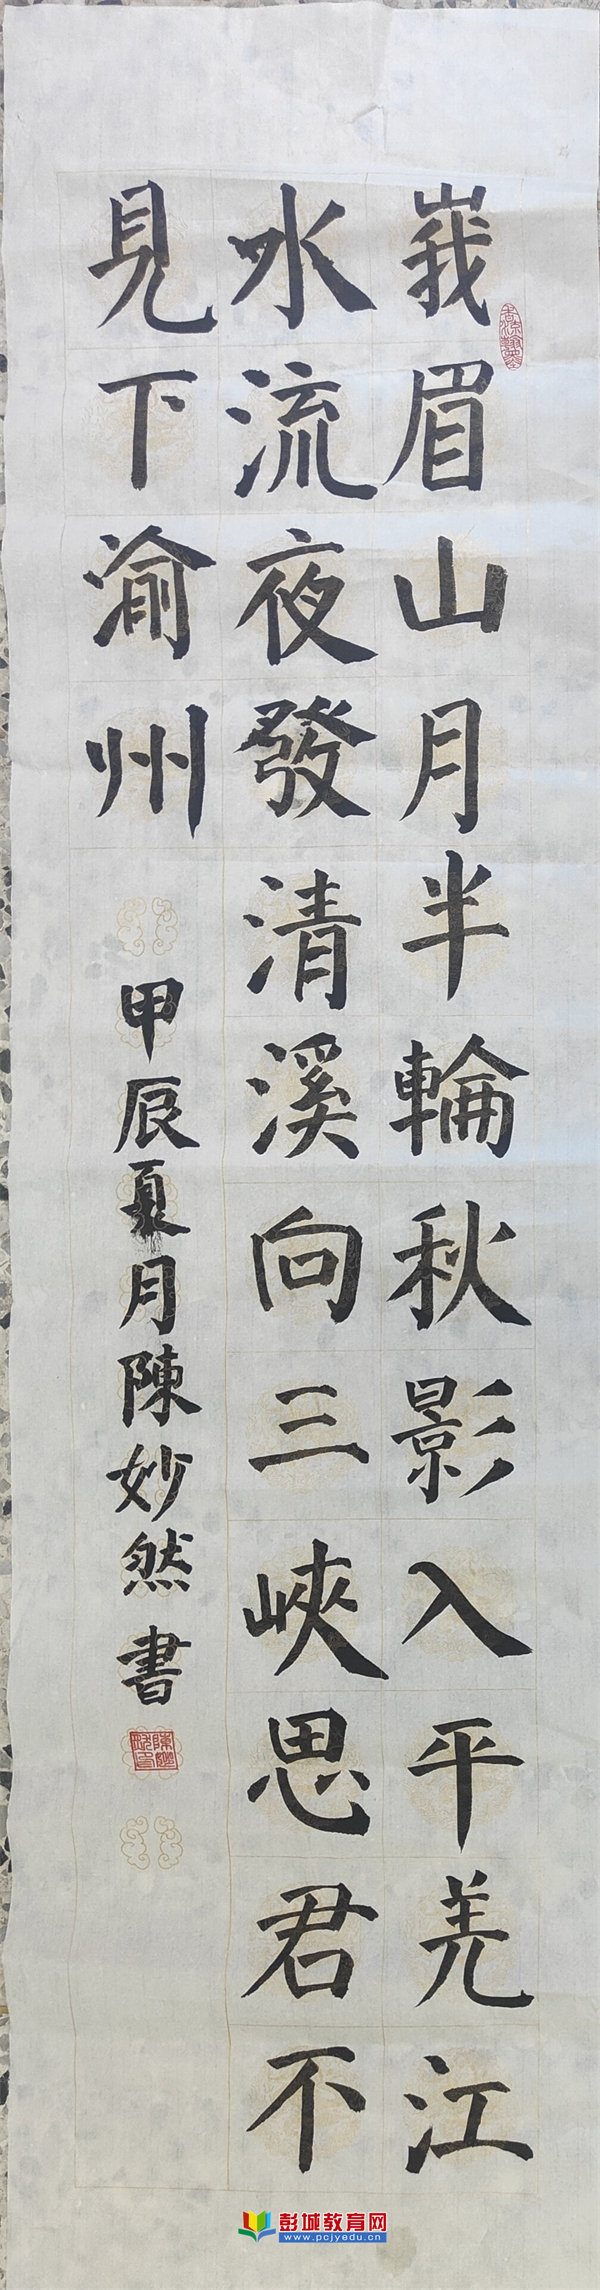 峩眉山月半輪秋影入平羌江
水流夜發清溪向三峽思君不
見下渝州
甲辰夏月陳妙然書
彭城教育网
www.pcjyedu.cn